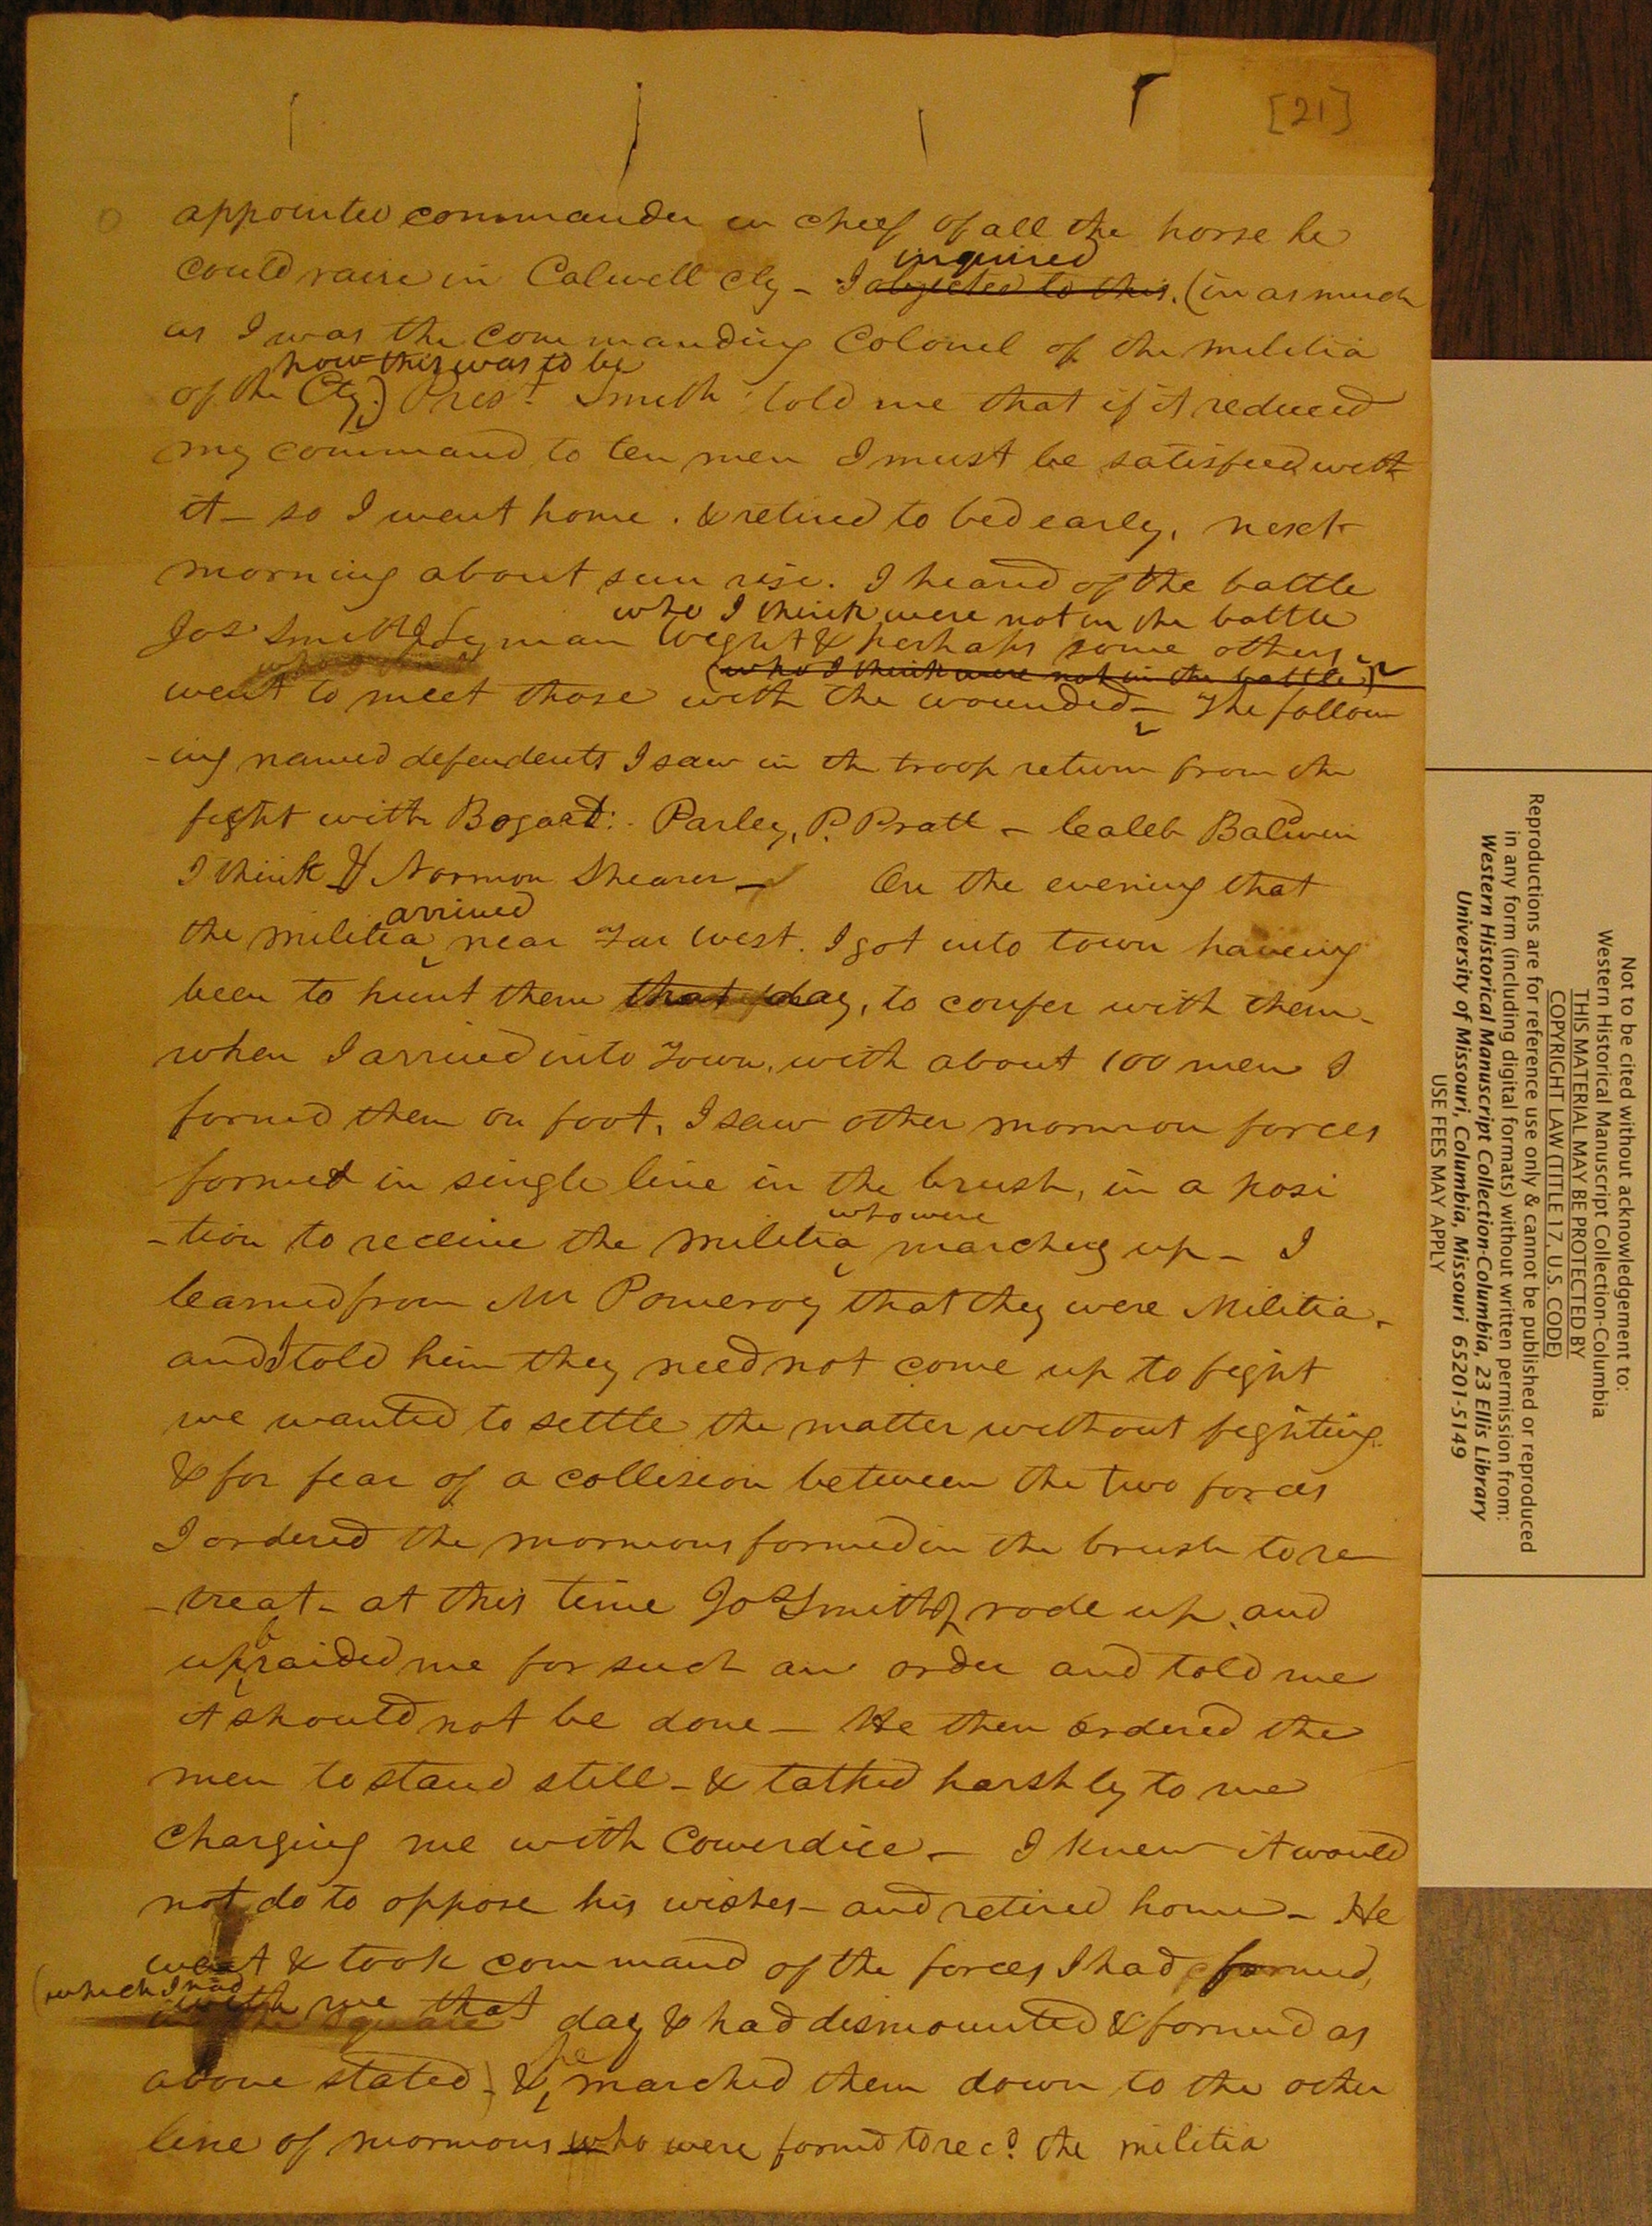 [21]
appointed commander in cheef of all the horse he
inquired
could raise in Calwell Cty - I objected to this. (in as much
as I was the commanding Colonel of the militia
how this was to be
of the Cty.) Prest. Smith told me that if it reduced
my command to ten men I must be satisfied with
it - so I went home. & retired to bed early, next
morning about sun rise. I heard of the battle
who I think were not in the battle
Jos Smith Jr Lyman Weght & perhaps some others
(who I think were not in the battle)
went to meet those with the wounded - The follow
-ing named defendents I saw in the troop return from the
fight with Bogart: Parley, P. Pratt - Caleb Baldwin
I think & Norman Shearer - On the evening that
arrived
the militia near Far West. I got into town haveing
been to hunt them that day, to confer with them -
when I arrived into Town, with about 100 men I
formed them on foot, I saw other mormon forces
formed in single line in the brush, in a posi
who were
-tion to receive the militia marching up - I
learned from Mr Pomeroy that they were Militia -
and I told him they need not come up to fight
we wanted to settle the matter without fighting
& for fear of a collision between the two forces
I ordered the mormons formed in the brush to re
-treat - at this time Jos Smith Jr rode up, and
b
upraided me for such an order and told me
it should not be done - He then ordered the
men to stand still - & talked harshly to me
charging me with Cowerdice - I knew it would
not do to oppose his wishes - and retired home - He
went & took command of the forces I had formed,
(which I had
with me that day & had dismounted & formed as
he
above stated) & marched them down to the other
line of mormons who were formd to recd. the militia
Not to be cited without acknowledgement to:
Western Historical Manuscript Collection-Columbia
THIS MATERIAL MAY BE PROTECTED BY
COPYRIGHT LAW (TITLE 17, U.S. CODE)
Reproductions are for reference use only & cannot be published or reproduced
in any form (including digital formats) without written permission from:
Western Historical Manuscript Collection-Columbia, 23 Ellis Library
University of Missouri, Columbia, Missouri 65201-5149
USE FEES MAY APPLY